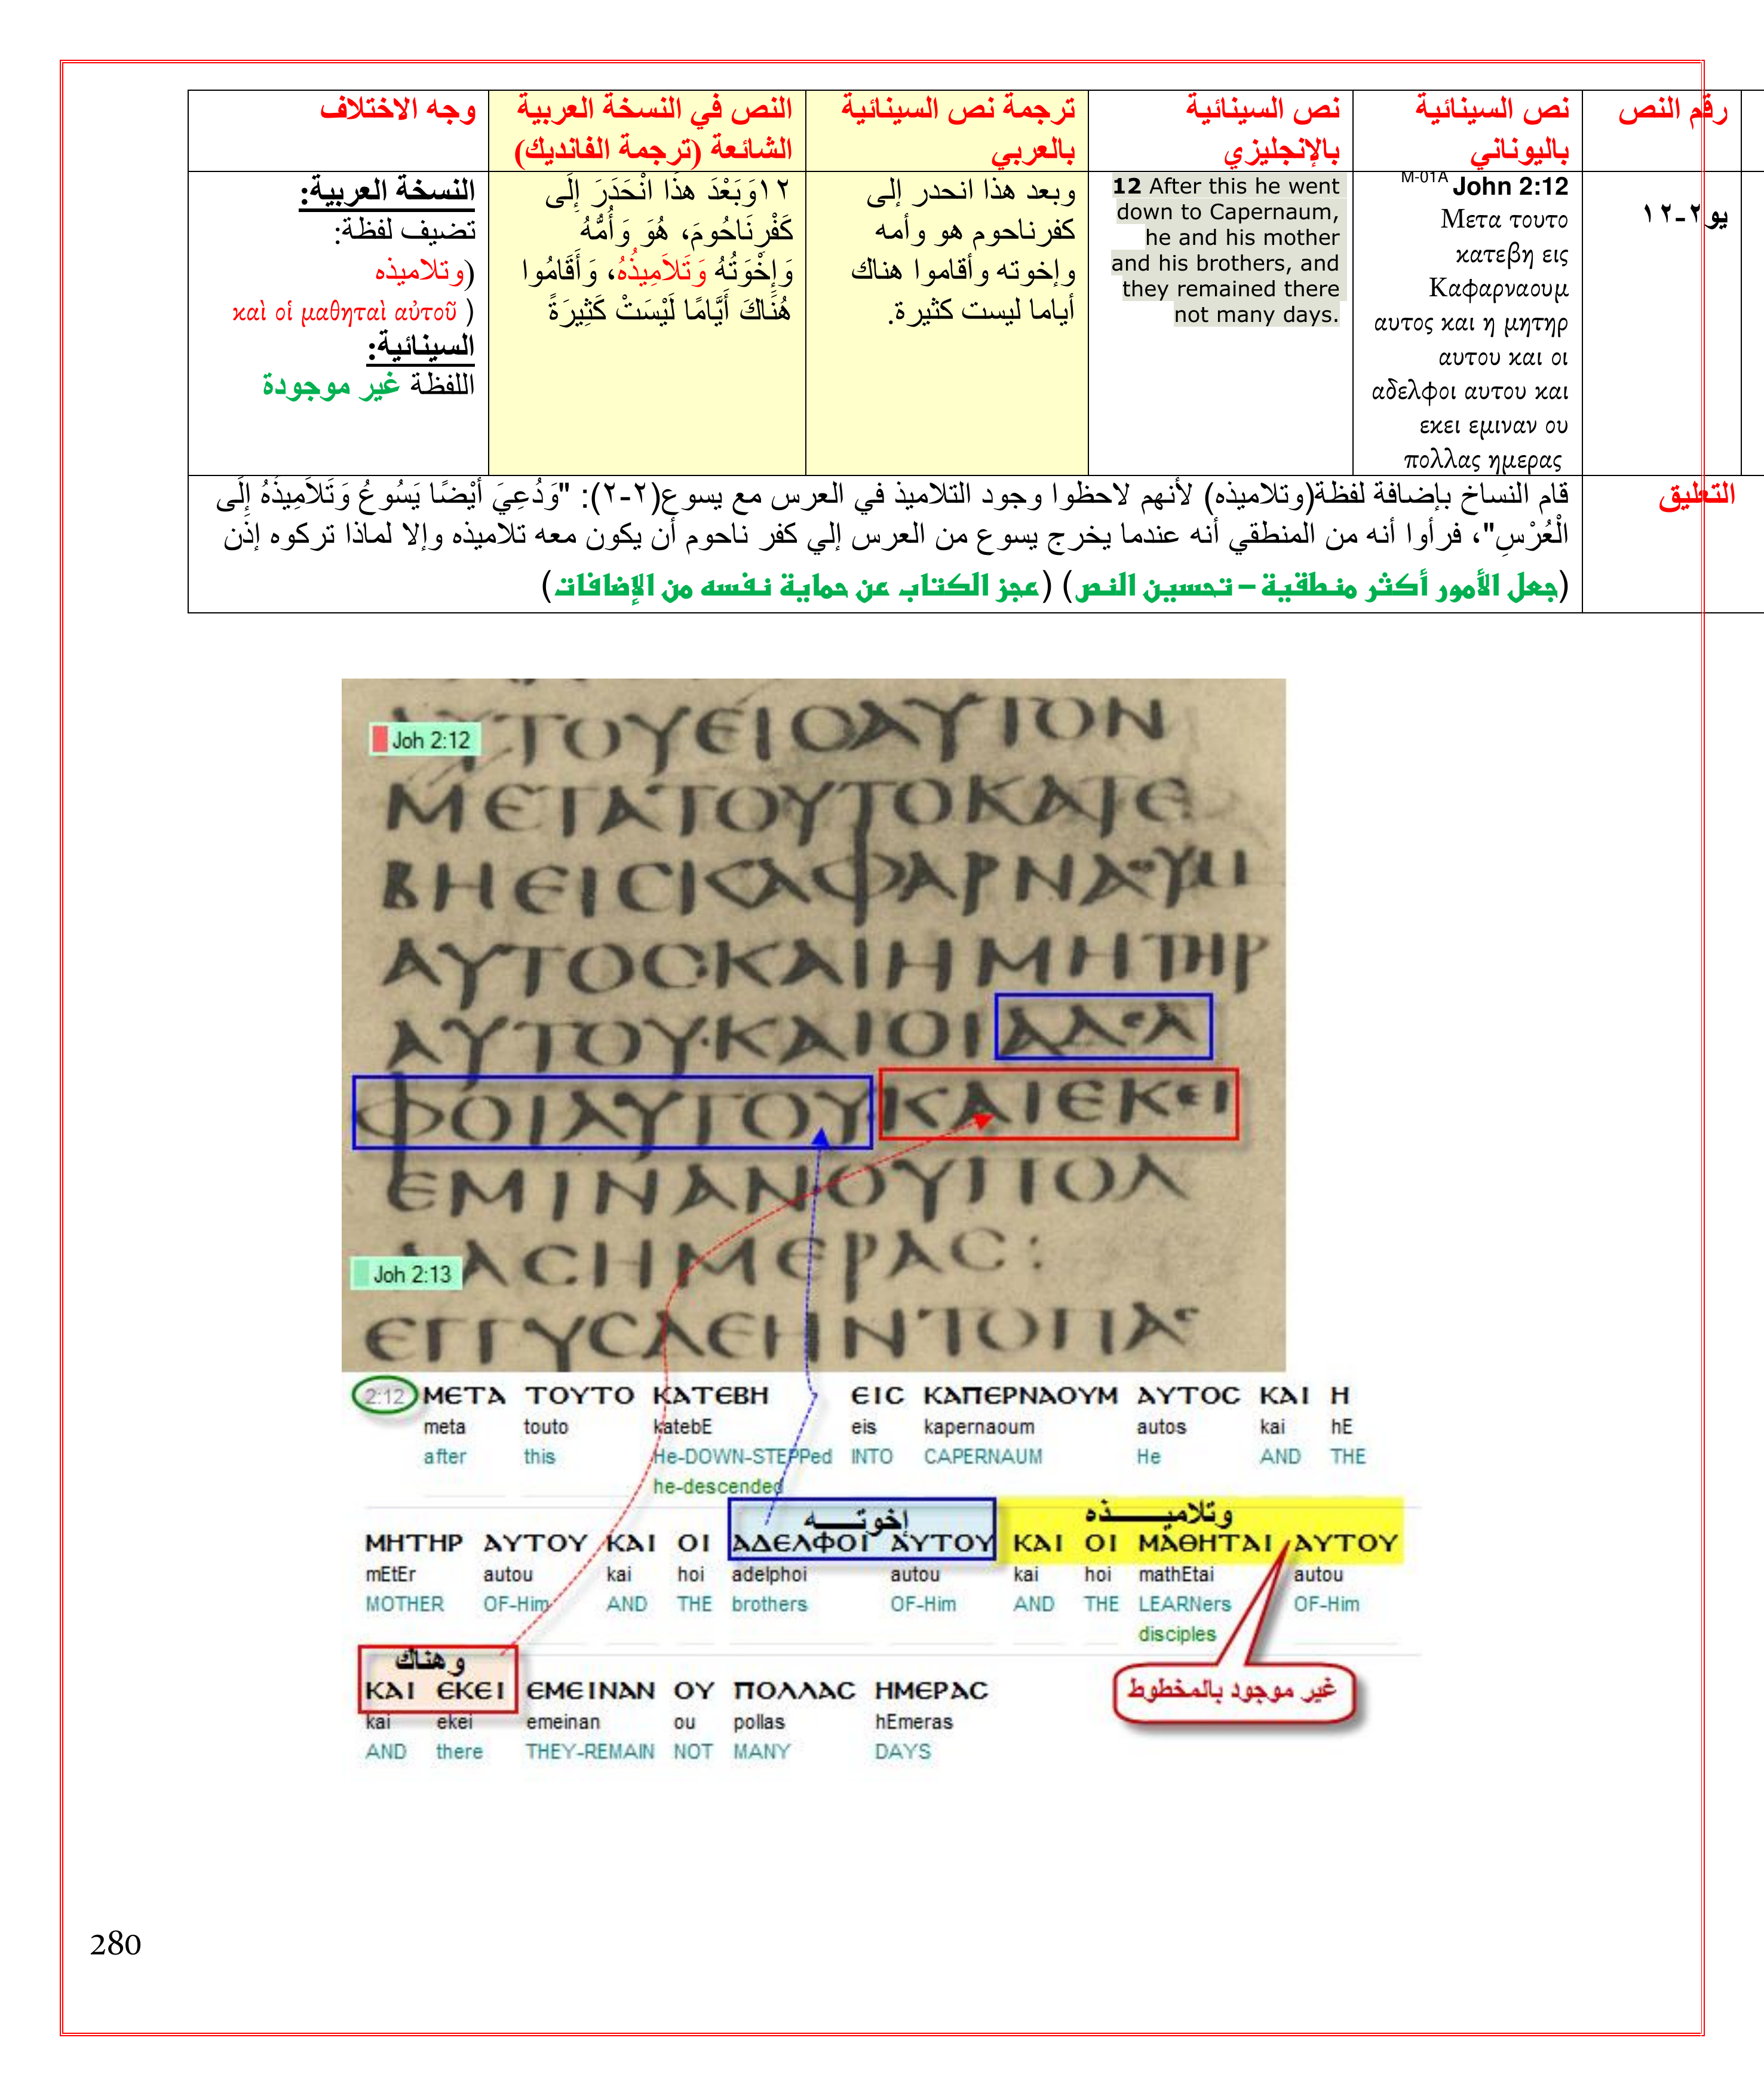 رقم النص
نص السينائية
باليوناني
نص السينائية
بالإنجليزي
ترجمة نص السينائية
بالعربي
النص في النسخة العربية
الشائعة (ترجمة الفانديك)
وجه الاختلاف
يو ٢-١٢
M-01A John 2:12
Μετα τουτο
κατεβη εις
Καφαρναουμ
αυτος και η μητηρ
αυτου και οι
αδελφοι αυτου και
εκει εμιναν ου
πολλας ημερας
12 After this he went
down to Capernaum,
he and his mother
and his brothers, and
they remained there
not many days.
وبعد هذا انحدر إلى
كفرناحوم هو وأمه
وإخوته وأقاموا هناك
أياما ليست كثيرة.
١٢وَبَعْدَ هذَا انْحَدَرَ إِلَى
كَفْرِنَاحُومَ، هُوَ وَأُمُّهُ
وَإِخْوَتُهُ وَتَلاَمِيذُهُ، وَأَقَامُوا
هُنَاكَ أَيَّامًا لَيْسَتْ كَثِيرَةً
النسخة العربية:
تضيف لفظة:
(وتلاميذه
καὶ οἱ μαθηταὶ αὐτοῦ )
السينائية:
اللفظة غير موجودة
التعليق
قام النساخ بإضافة لفظة(وتلاميذه) لأنهم لاحظوا وجود التلاميذ في العرس مع يسوع(٢-٢): "وَدُعِيَ أَيْضًا يَسُوعُ وَتَلاَمِيذُهُ إِلَى
الْعُرْسِ"، فرأوا أنه من المنطقي أنه عندما يخرج يسوع من العرس إلي كفر ناحوم أن يكون معه تلاميذه وإلا لماذا تركوه إذن
(جعل الأمور أكثر منطقية – تحسين النص) (عجز الكتاب عن حماية نفسه من الإضافات)
ΑΥΤΟΥΕΙΟΑΥΤΟΝ
Joh 2:12
ΜΕΤΑΤΟΥΤΟΚΑΤΕ
ΒΗΕΙϹΚΑΦΑΡΝΑΟΥΜ
ΑΥΤΟϹΚΑΙΗΜΗΤΗΡ
ΑΥΤΟΥ·ΚΑΙΟΙΑΔΕΛ
ΦΟΙΑΥΤΟΥΚΑΙΕΚΕΙ
ΕΜΙΝΑΝΟΥΠΟΛ
ΛΑϹΗΜΕΡΑϹ:
Joh 2:13
ΕΓΓΥϹΔΕΗΝΤΟΠΑϹ
2:12 ΜΕΤΑ ΤΟΥΤΟ ΚΑΤΕΒΗ ΕΙϹ ΚΑΠΕΡΝΑΟΥΜ ΑΥΤΟϹ ΚΑΙ Η
meta touto katebE eis kapernaoum autos kai hE
after this He-DOWN-STEPPed INTO CAPERNAUM He AND THE
he-descended
إخوتـــــه وتلاميـــــذه
ΜΗΤΗΡ ΑΥΤΟΥ ΚΑΙ ΟΙ ΑΔΕΛΦΟΙ ΑΥΤΟΥ ΚΑΙ ΟΙ ΜΑΘΗΤΑΙ ΑΥΤΟΥ
mEtEr autou kai hoi adelphoi autou kai hoi mathEtai autou
MOTHER OF-Him AND THE brothers OF-Him AND THE LEARNers OF-Him
disciples
وهناك
ΚΑΙ ΕΚΕΙ ΕΜΕΙΝΑΝ ΟΥ ΠΟΛΛΑϹ ΗΜΕΡΑϹ
غير موجود بالمخطوط
kai ekei emeinan ou pollas hEmeras
AND there THEY-REMAIN NOT MANY DAYS
280